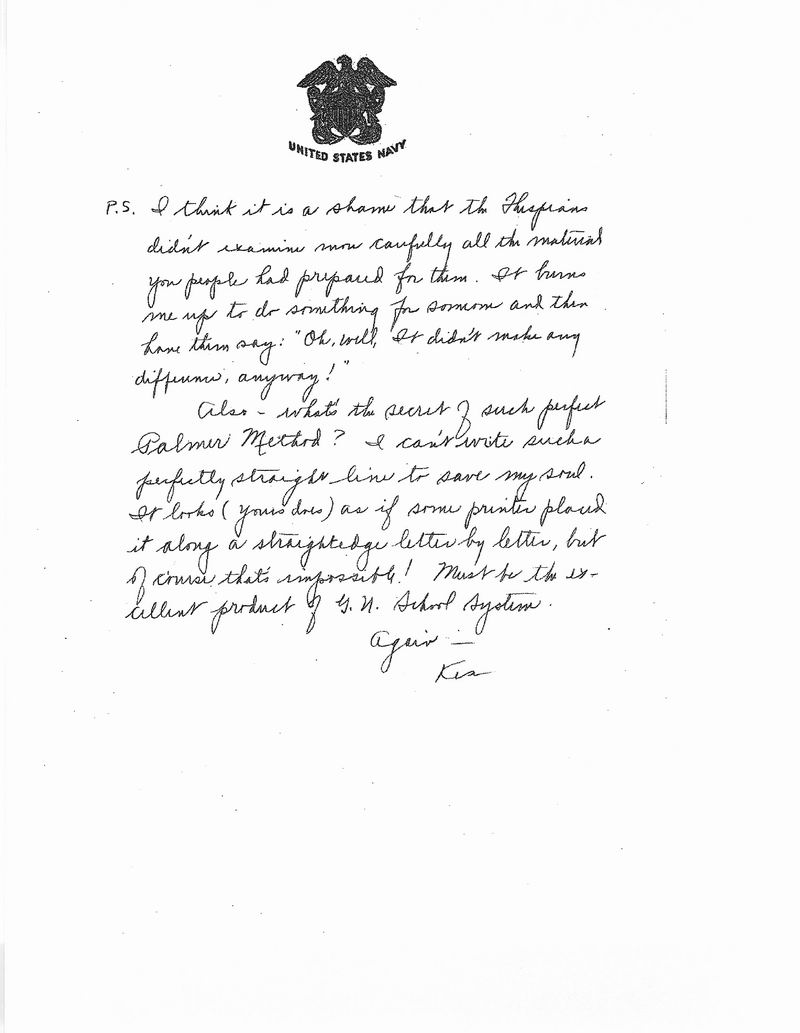 UNITED STATES NAVY
P.S. I think it is a shame that the Thespians
didn't examine more carefully all the material
you people had prepared for them. It burns
me up to do something for someone and then
have them say: "Oh, well, It didn't make any
difference, anyway!"
Also - what's the secret of such perfect
Palmer Method? I can't write such a
perfectly straight line to save my soul.
It looks (yours does) as if some printer placed
it along a straightedge letter by letter, but
of course that's impossible! Must be the ex-
cellent product of G. N. School System.
Again —